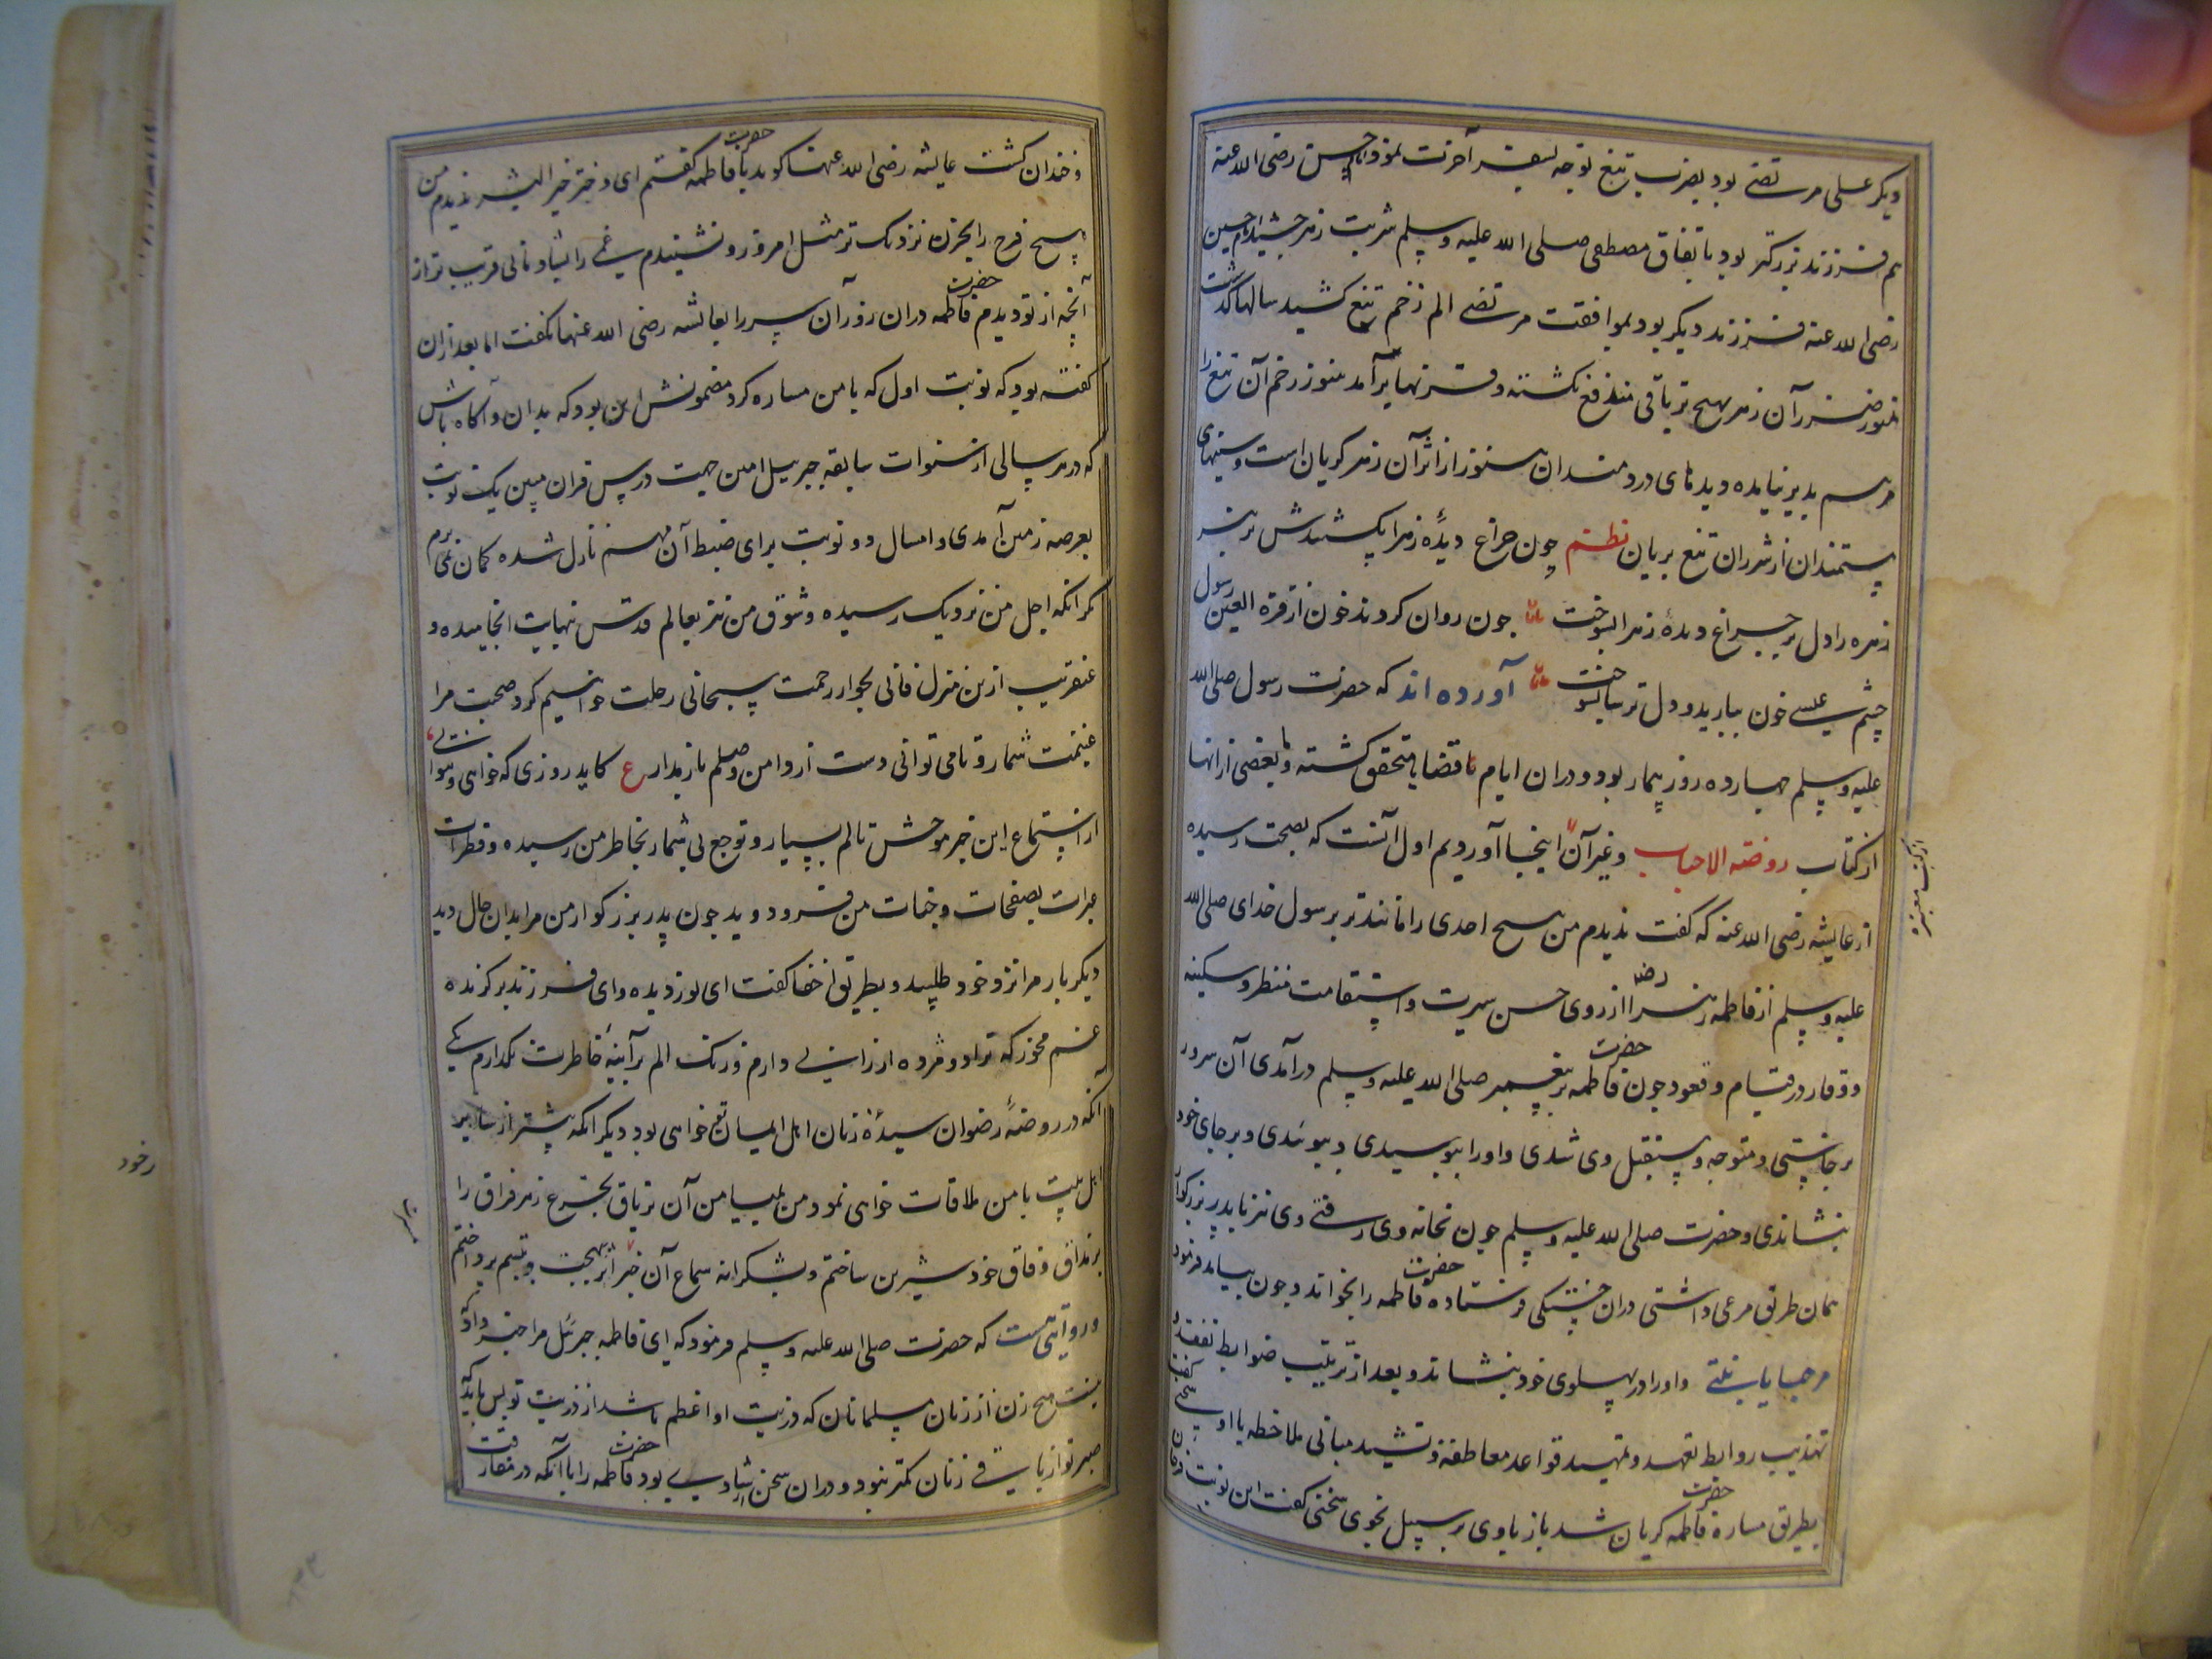 دیگر علی مرتضی بود بضرب تیغ توجه بسفر آخرت نمود امام حسن رضی الله عنه
هم فرزند بزرگتر بود باتفاق مصطفی صلی الله علیه وسلم شربت زهر چشید امام حسین
رضی الله عنه فرزند دیگر بود بموافقت مرتضی الم زخم تیغ کشید سالها گذشت
هنوز ضرر آن زهر بهیچ تریاقی مندفع نکشته وقرنها برآمد هنوز زخم آن تیغ را
مرهم پدیر نیامده ودیدهای دردمندان هنوز از اثر آن زهر کریان است وسینهای
مستمندان از شرر آن تیغ بریان نظم چون چراغ دیدهٔ زهرا بکشتندش بزهر
زهره را دل بر چراغ دیدهٔ زهرا بسوخت چون روان کردند خون از قرة العین رسول
چشم عیسی خون ببارید ودل ترسا بسوخت آورده اند که حضرت رسول صلی الله
علیه وسلم چهارده روز بیمار بود ودران ایام قضایا متحقق کشته وبعضی ازانها
از کتاب روضة الاحباب وغیر آن اینجا آوردیم اول آنست که بصحت رسیده
از کتب معتبره
از عایشه رضی الله عنه که گفت ندیدم من هیچ احدی را مانندتر برسول خدای صلی الله
علیه وسلم از فاطمه زهرا رضه از روی حسن سیرت واستقامت منظر وسکینه
ووقار در قیام وقعود چون حضرت فاطمه بر پیغمبر صلی الله علیه وسلم درآمدی آن سرور
برخاستی ومتوجه ومستقبل وی شدی واورا ببوسیدی وببوئیدی وبر جای خود
بنشاندی وحضرت صلی الله علیه وسلم چون بخانه وی رفتی وی نیز با پدر بزرگوار
همان طریق مرعی داشتی دران خستگی فرستاده حضرت فاطمه را بخواند وچون بیامد فرمود
مرحبا یا بنتی واورا در پهلوی خود بنشاند وبعد از ترتیب ضوابط تفقد و
تهذیب روابط تعهد وتمهید قواعد معاطفة وتشیید مبانی ملاطفه با او سخنی گفت
بطریق مساره حضرت فاطمه کریان شد باز با وی بر سبیل نجوی سخنی گفت این نوبت فرحان
وخندان کشت عایشه رضی الله عنها کوید با حضرت فاطمه کفتم ای دختر خیر البشر ندیدم من
هیچ فرح را بحزن نزدیک تر مثل امروز ونشنیدم غمی را بشادمانی قریب تر از
آنچه از تو دیدم حضرت فاطمه دران روز آن سر را بعائشه رضی الله عنها نکفت اما بعد ازان
کفته بود که نوبت اول که با من مساره کرد مضمونش این بود که بدان وآکاه باش
که در هر سالی از سنوات سابقه جبریل امین جهت درس قران مبین یک نوبت
بعرصه زمین آمدی وامسال دو نوبت برای ضبط آن مهم نازل شده کمان نمی برم
مکر آنکه اجل من نزدیک رسیده وشوق من نیز بعالم قدس بنهایت انجامیده و
عنقریب ازین منزل فانی بجوار رحمت سبحانی رحلت خواهیم کرد صحبت مرا
غنیمت شمار وتا می توانی دست از دامن وصلم باز مدار ع کاید روزی که خواهی و نتوانی
از استماع این خبر موحش تالم بسیار وتوجع بی شمار بخاطر من رسیده وقطرات
عبرات بصفحات وجنات من فرود وید چون پدر بزرکوار من مرا بدان حال دید
دیکر بار مرا نزد خود طلبید وبطریق اخفا کفت ای نور دیده وای فرزند برکزیده
غم مخور که ترا دو مژده ارزانی دارم وزنک الم بر آینهٔ خاطرت نکذارم یکی
آنکه در روضهٔ رضوان سیدهٔ زنان اهل ایمان تو خواهی بود دیکر آنکه پیشتر از سایر
اهل بیت با من ملاقات خواهی نمود ومن بمیامن آن تریاق تجرع زهر فراق را
بر مذاق وفاق خود شیرین ساختم وبشکرانه سماع آن خبر اثر بهجت وتبسم پرداختم
وروایتی هست که حضرت صلی الله علیه وسلم فرمود که ای فاطمه جبرئیل مرا خبر داد که
نیست هیچ زن از زنان مسلمانان که ذریت او اعظم باشد از ذریت تو پس باید که
صبر تو از باقی زنان کمتر نبود ودران سخن اشارتی بود حضرت فاطمه را باآنکه در مفارقت